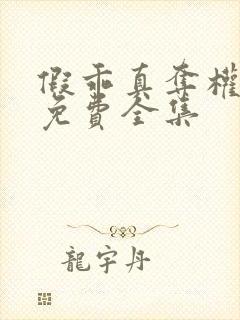 假乖真奪權
免費全集
龍宇丹